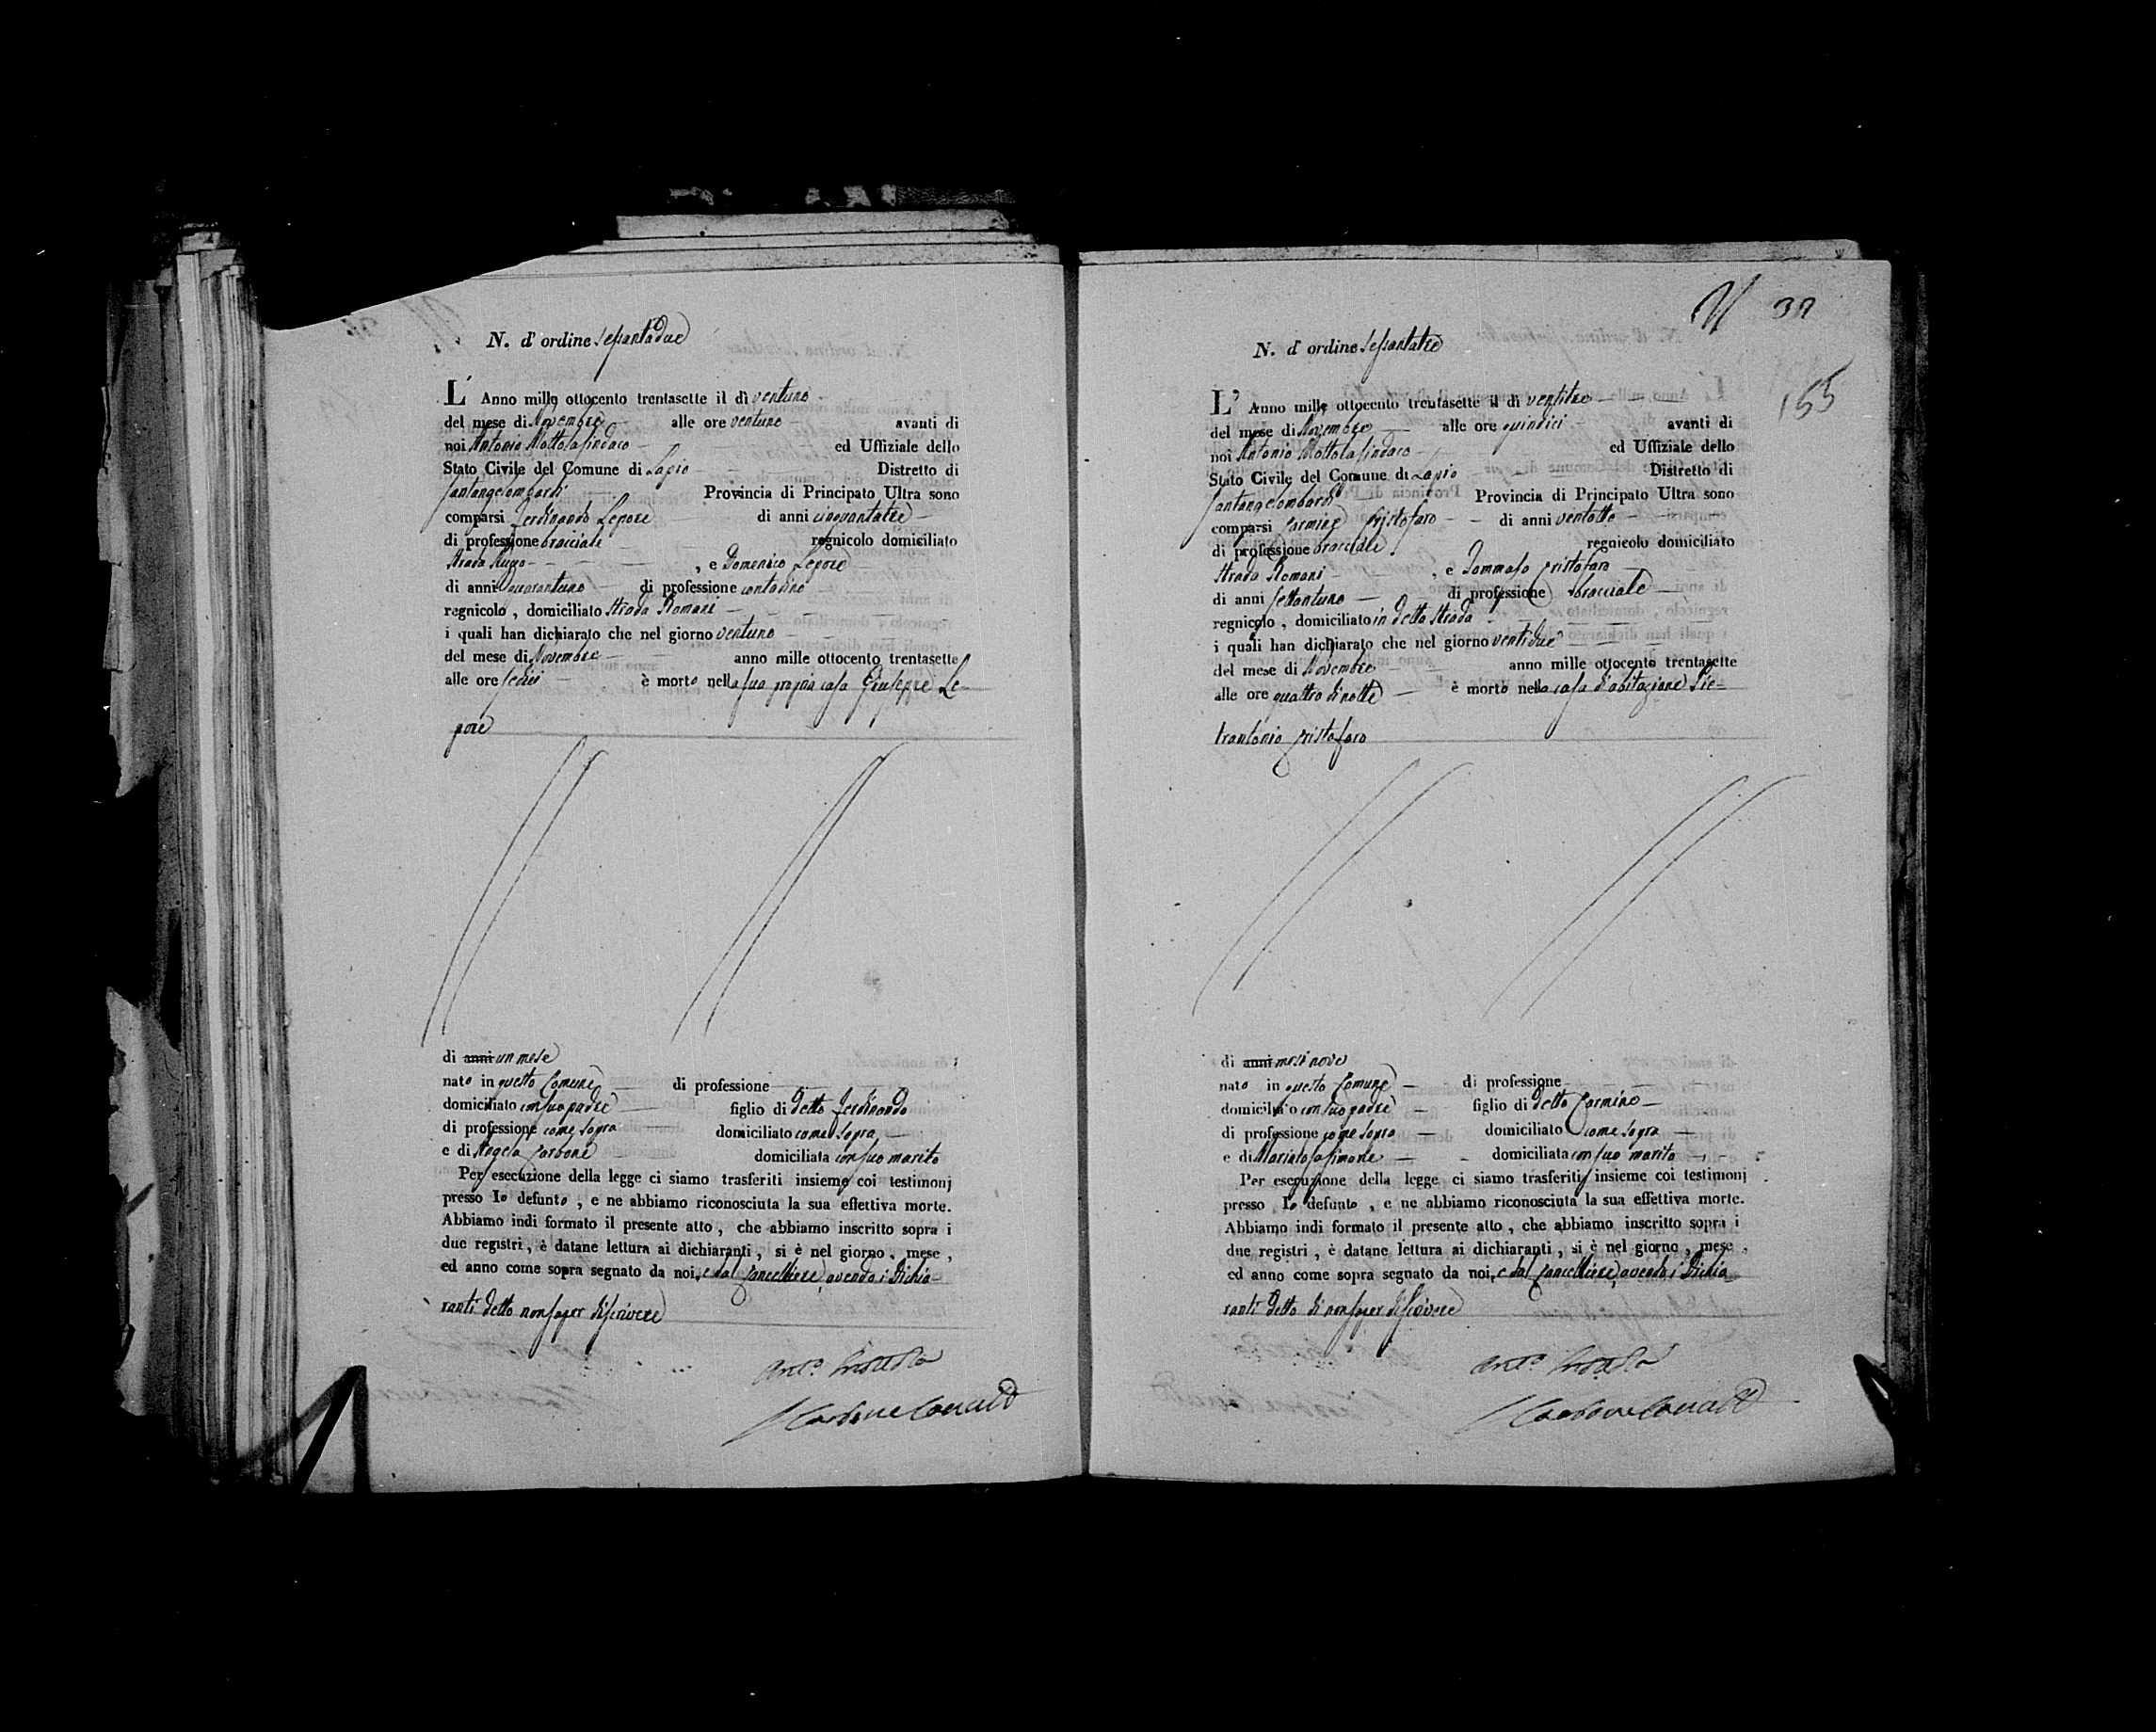 N. d' ordine sessantadue
L' Anno mille ottocento trentasette il dì ventuno
del mese di Novembre alle ore ventuno avanti di
noi Antonio Mottola sindaco ed Uffiziale dello
Stato Civile del Comune di Lapio Distretto di
Santangelombardi Provincia di Principato Ultra sono
comparsi Ferdinando Lepore di anni cinquantatre
di professione bracciale regnicolo domiciliato
Strada , e Domenico Lepore
di anni quarantuno di professione contadino
regnicolo , domiciliato Strada Romani
i quali han dichiarato che nel giorno ventuno
del mese di Novembre anno mille ottocento trentasette
alle ore sedici è morto nella sua propria casa Giuseppe Le-
pore
di anni un mese
nato in questo Comune di professione
domiciliato con suo padre figlio di detto Ferdinando
di professione come sopra domiciliato come sopra
e di Angela Carbone domiciliata con suo marito
Per esecuzione della legge ci siamo trasferiti insieme coi testimonj
presso lo defunto , e ne abbiamo riconosciuta la sua effettiva morte.
Abbiamo indi formato il presente atto , che abbiamo inscritto sopra i
due registri , è datane lettura ai dichiaranti , si è nel giorno , mese ,
ed anno come sopra segnato da noi, e dal Cancelliere, avendo i dichia-
ranti detto non saper di scrivere
Ant.o Mottola
Carbone
39
155
N. d' ordine sessantatre
L' Anno mille ottocento trentasette il dì ventitre
del mese di Novembre alle ore quindici avanti di
noi Antonio Mottola sindaco ed Uffiziale dello
Stato Civile del Comune di Lapio Distretto di
Santangelombardi Provincia di Principato Ultra sono
comparsi Carmine Cristofaro di anni ventotto
di professione bracciale regnicolo domiciliato
Strada Romani , e Tommaso Cristofaro
di anni settantuno di professione bracciale
regnicolo , domiciliato in detta strada
i quali han dichiarato che nel giorno ventidue
del mese di Novembre anno mille ottocento trentasette
alle ore quattro di notte è morto nella casa d'abitazione Pie-
trantonio Cristofaro
di anni mesi nove
nato in questo Comune di professione
domiciliato con suo padre figlio di detto Carmine
di professione come sopra domiciliato come sopra
e di domiciliata con suo marito
Per esecuzione della legge ci siamo trasferiti insieme coi testimonj
presso lo defunto , e ne abbiamo riconosciuta la sua effettiva morte.
Abbiamo indi formato il presente atto , che abbiamo inscritto sopra i
due registri , è datane lettura ai dichiaranti , si è nel giorno , mese ,
ed anno come sopra segnato da noi, e dal Cancelliere, avendo i dichia-
ranti detto di non saper di scrivere
Ant.o Mottola
Carbone